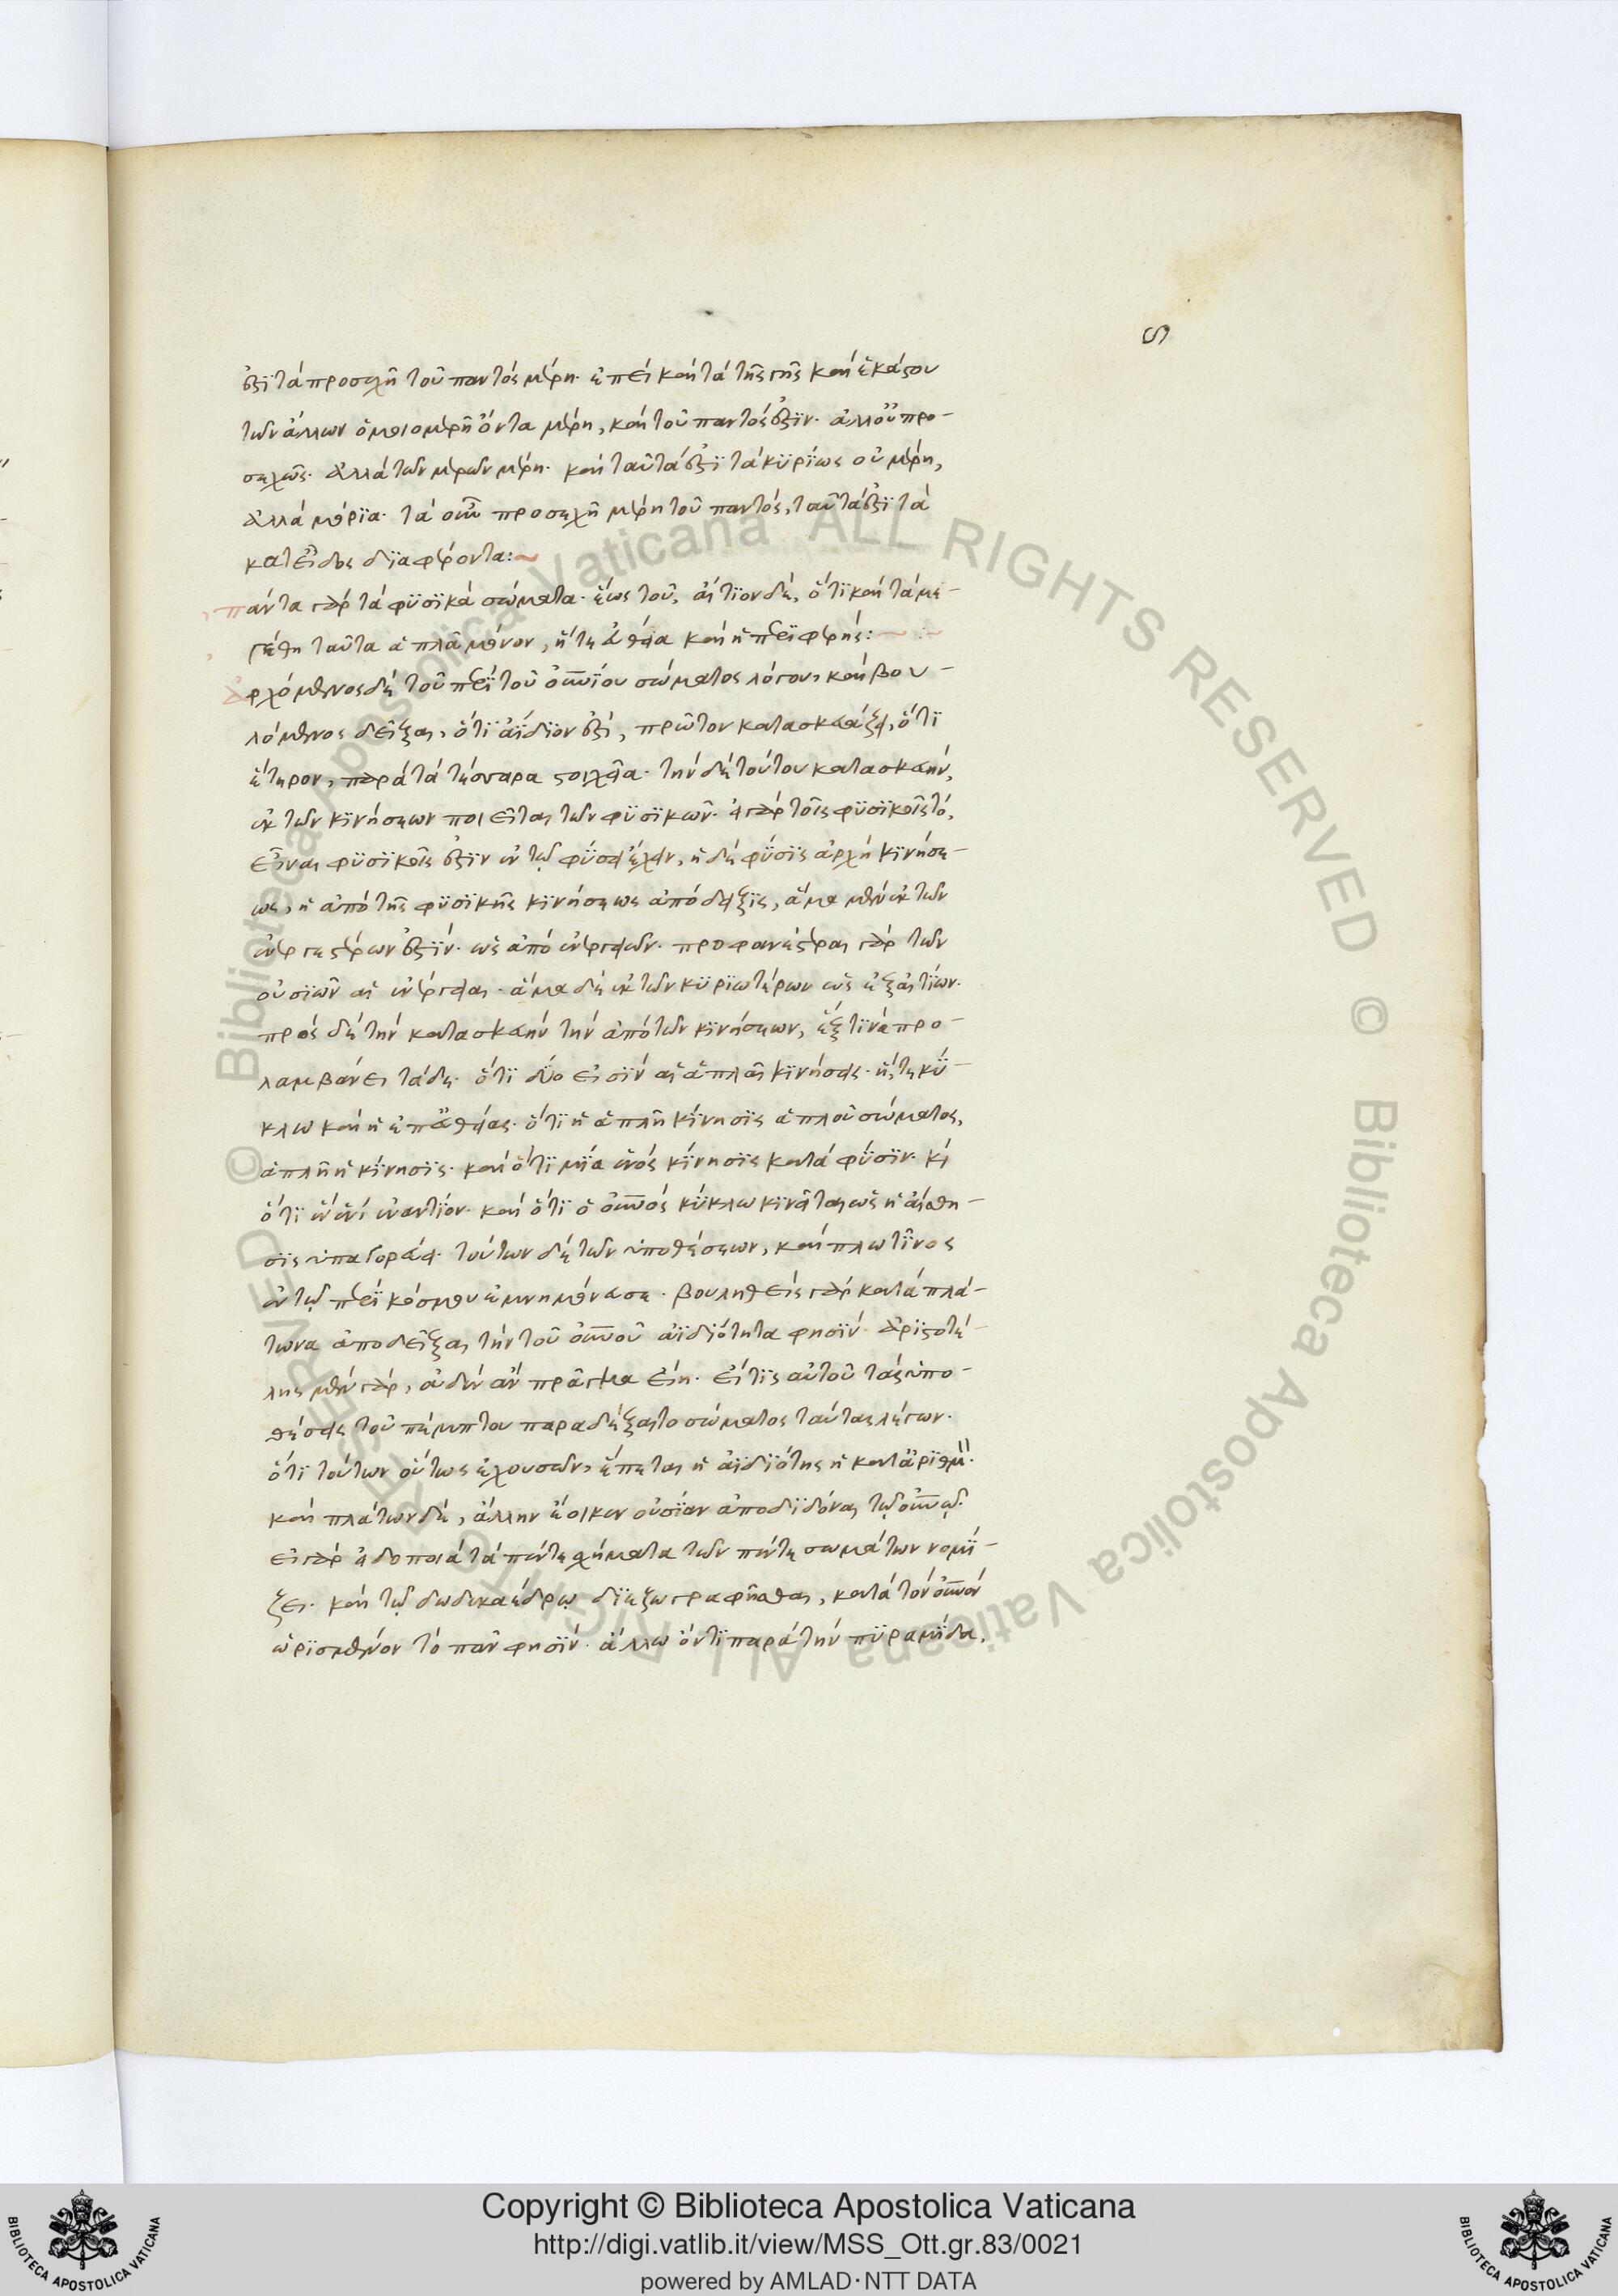 ς
ἐστὶ τὰ προσεχῆ τοῦ παντὸς μέρη. ἐπεὶ καὶ τὰ τῆς γῆς καὶ ἑκάστου
τῶν ἄλλων ὁμοιομερῆ ὄντα μέρη, καὶ τοῦ παντός ἐστιν. ἀλλ' οὐ προ-
σεχῶς. ἀλλὰ τῶν μερῶν μέρη. καὶ ταῦτά ἐστι τὰ κυρίως οὐ μέρη,
ἀλλὰ μόρια. τὰ οὖν προσεχῆ μέρη τοῦ παντός, ταῦτά ἐστι τὰ
κατ' εἶδος διαφέροντα:~
πάντα γὰρ τὰ φυσικὰ σώματα. ἕως τοῦ, αἴτιον δέ, ὅτι καὶ τὰ με-
γέθη ταῦτα ἁπλᾶ μόνον, ἥτε εὐθεῖα καὶ ἡ περιφερής:~
ἀρχόμενος δὲ τοῦ περὶ τοῦ οὐνίου σώματος λόγου, καὶ βου-
λόμενος δεῖξαι, ὅτι ἀΐδιόν ἐστι, πρῶτον κατασκευάζει, ὅτι
ἕτερον, παρὰ τὰ τέσσαρα στοιχεῖα. τὴν δὲ τούτου κατασκευήν,
ἐκ τῶν κινήσεων ποιεῖται τῶν φυσικῶν. εἰ γὰρ τοῖς φυσικοῖς τό,
εἶναι φυσικοῖς ἐστιν ἐν τῷ φύσει ἔχειν, ἡ δὲ φύσις ἀρχὴ κινήσε-
ως, ἡ ἀπὸ τῆς φυσικῆς κινήσεως ἀπόδειξις, ἅμα μὲν ἐκ τῶν
ἐνεργεστέρων ἐστίν. ὡς ἀπὸ ἐνεργειῶν. προφανέστεραι γὰρ τῶν
οὐσιῶν αἱ ἐνέργειαι. ἅμα δὲ ἐκ τῶν κυριωτέρων ὡς ἐξ αἰτίων.
πρὸς δὲ τὴν κατασκευὴν τὴν ἀπὸ τῶν κινήσεων, ἕξ τινα προ-
λαμβάνει τάδε. ὅτι δύο εἰσὶν αἱ ἁπλαῖ κινήσεις. ἥ, τε κύ-
κλω καὶ ἡ ἐπ' εὐθείας. ὅτι ἡ ἁπλῆ κίνησις ἁπλοῦ σώματος,
ἁπλῆ ἡ κίνησις. καὶ ὅτι μία ἑνὸς κίνησις κατὰ φύσιν. κὶ
ὅτι ἓν ἑνὶ ἐναντίον. καὶ ὅτι ὁ οὐνὸς κύκλω κινεῖται ὡς ἡ αἴσθη-
σις ὑπαγορεύει. τούτων δὲ τῶν ὑποθέσεων, καὶ πλωτῖνος
ἐν τῷ περὶ κόσμου ἐμνημόνευσε. βουληθεὶς γὰρ κατὰ πλά-
τωνα ἀποδεῖξαι τὴν τοῦ οὐνοῦ ἀϊδιότητα φησίν. ἀριστοτέ-
λης μὲν γάρ, οὐδὲν ἂν πρᾶγμα εἴη. εἴ τις αὐτοῦ τὰς ὑπο-
θέσεις τοῦ πέμπτου παραδέξαιτο σώματος ταύτας λέγων.
ὅτι τούτων οὕτως ἐχουσῶν, ἕπεται ἡ ἀϊδιότης ἡ κατ' ἀριθμ.
καὶ πλάτων δέ, ἄλλην ἔοικεν οὐσίαν ἀποδιδόναι τῷ οὐνῷ.
εἰ γὰρ εἰδοποιὰ τὰ πέντε σχήματα τῶν πέντε σωμάτων νομί-
ζει. καὶ τῷ δωδεκαέδρῳ διεζωγραφῆσθαι, κατὰ τὸν οὐνὸν
ὡρισμένον τὸ πᾶν φησίν. ἄλλω ὄντι παρὰ τὴν πυραμίδα,
Copyright © Biblioteca Apostolica Vaticana
http://digi.vatlib.it/view/MSS_Ott.gr.83/0021
powered by AMLAD·NTT DATA